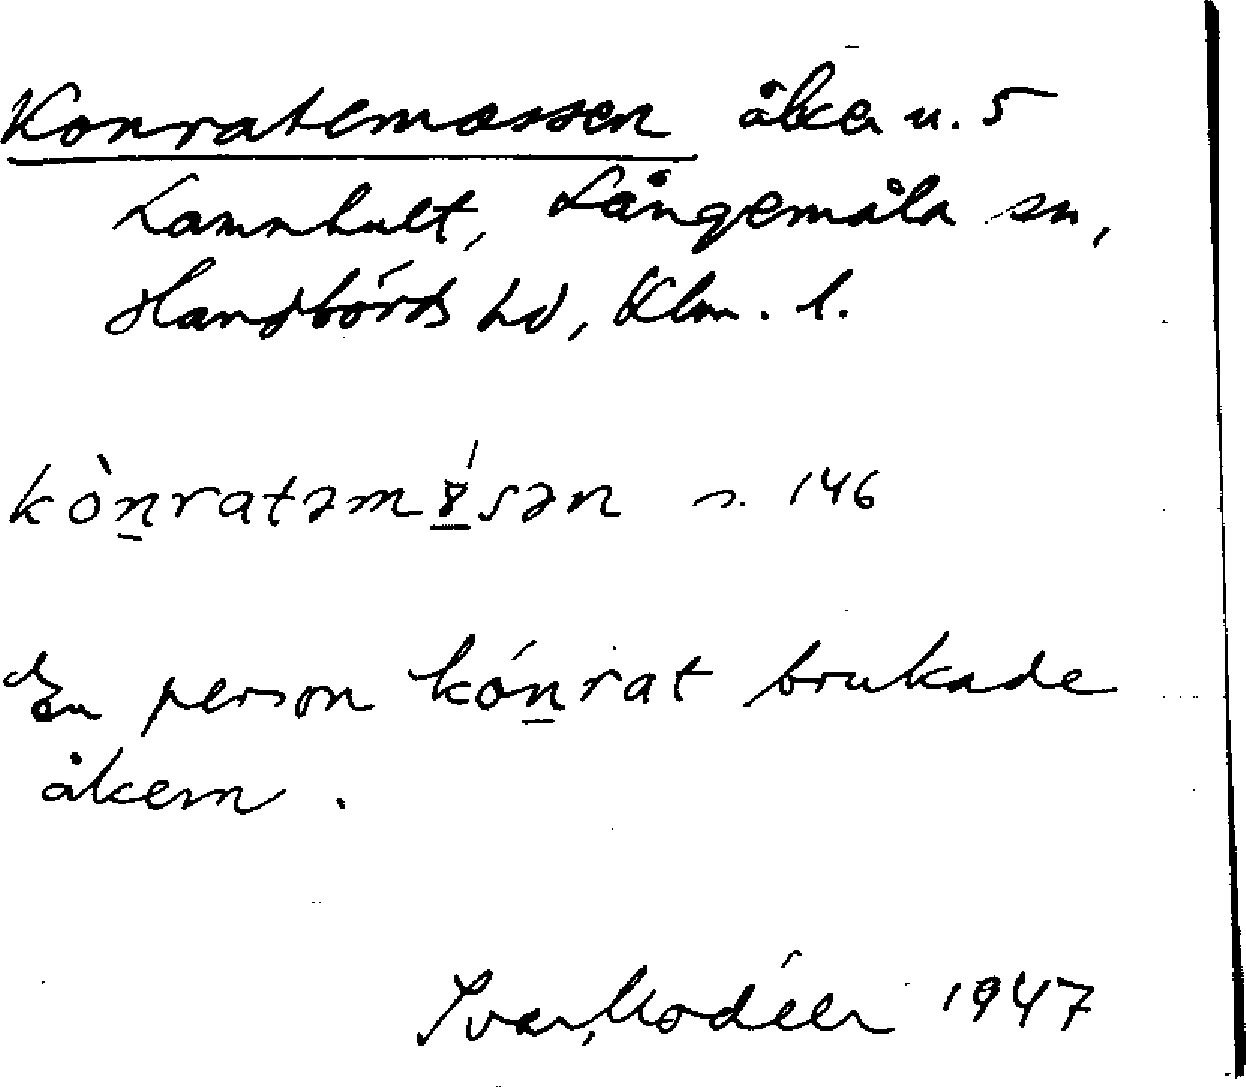 Konratemossen åker u. 5
Lamnhult, Långemåla sn,
Handbörds hd, Klm. l.
kònratəmɤ́sən s. 146
En person kónrat brukade
åkern.
Ivar Modéer 1947